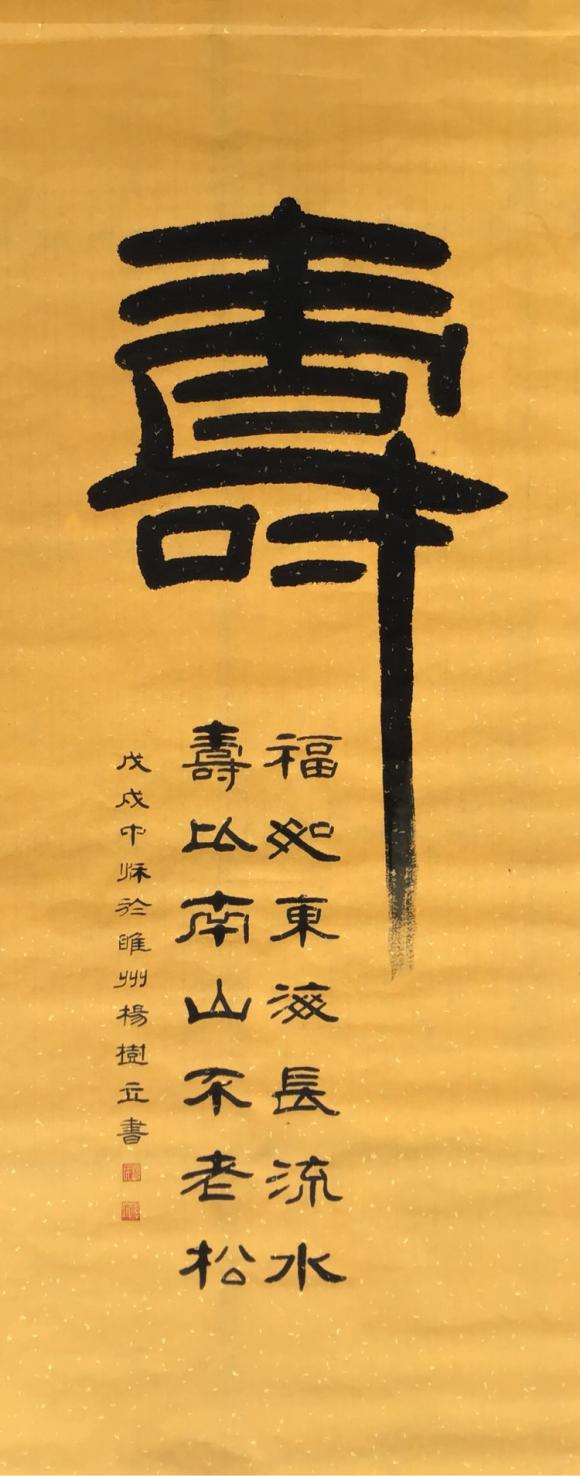 壽
福如東海長流水
壽比南山不老松
戊戌中秋於睢州楊樹立書